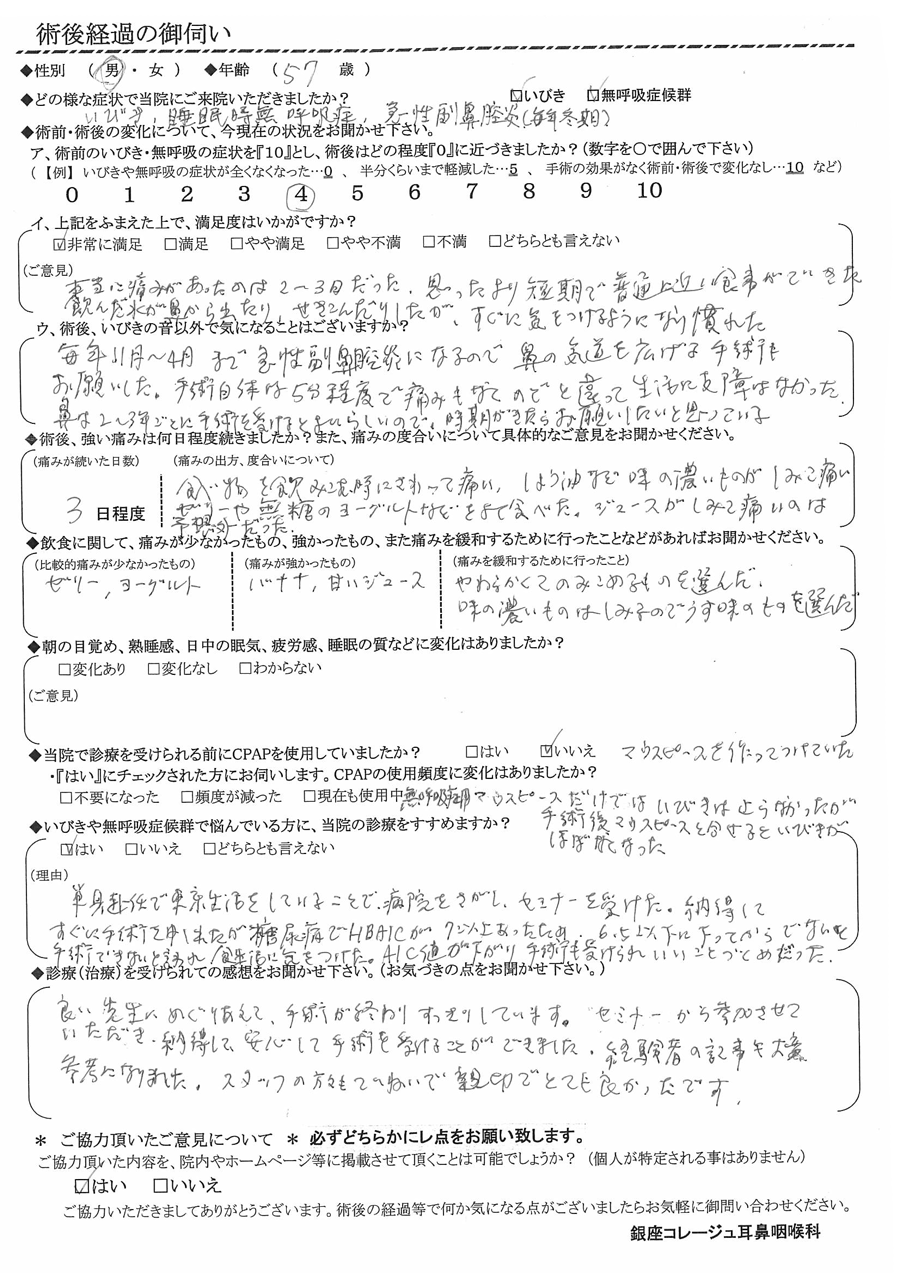 術後経過の御伺い
◆性別 ( 男 ・ 女 ) ◆年齢 ( 57 歳 )
◆どの様な症状で当院にご来院いただきましたか? ☑いびき ☑無呼吸症候群
いびき, 睡眠時無呼吸症, 急性副鼻腔炎(毎年冬期)
◆術前・術後の変化について、今現在の状況をお聞かせ下さい。
ア、術前のいびき・無呼吸の症状を『10』とし、術後はどの程度『0』に近づきましたか?(数字を○で囲んで下さい)
(【例】 いびきや無呼吸の症状が全くなくなった…0 、 半分くらいまで軽減した…5 、 手術の効果がなく術前・術後で変化なし…10 など)
0 1 2 3 4 5 6 7 8 9 10
イ、上記をふまえた上で、満足度はいかがですか?
☑非常に満足 □満足 □やや満足 □やや不満 □不満 □どちらとも言えない
(ご意見)
本当に痛みがあったのは2~3日だった. 思ったより短期で普通に近い食事ができた
飲んだ水が鼻から出たり, せきこんだりしたが、すぐに気をつけるようになり慣れた
ウ、術後、いびきの音以外で気になることはございますか?
毎年11月~4月まで急性副鼻腔炎になるので鼻の気道を広げる手術も
お願いした. 手術自体は5分程度で痛みもなくのどと違って生活に支障はなかった.
鼻は2~3年ごとに手術を受けるとよいらしいので, 時期がきたらお願いしたいと思っている
◆術後、強い痛みは何日程度続きましたか?また、痛みの度合いについて具体的なご意見をお聞かせください。
(痛みが続いた日数) (痛みの出方、度合いについて)
3 日程度
食べ物を飲みこむ時にさわって痛い, しょう油など味の濃いものがしみて痛い
ゼリーや無糖のヨーグルトなどをよく食べた。ジュースがしみて痛いのは
予想外だった.
◆飲食に関して、痛みが少なかったもの、強かったもの、また痛みを緩和するために行ったことなどがあればお聞かせください。
(比較的痛みが少なかったもの) (痛みが強かったもの) (痛みを緩和するために行ったこと)
ゼリー, ヨーグルト バナナ, 甘いジュース やわらかくてのみこめるものを選んだ.
味の濃いものはしみるのでうす味のものを選んだ
◆朝の目覚め、熟睡感、日中の眠気、疲労感、睡眠の質などに変化はありましたか?
□変化あり □変化なし □わからない
(ご意見)
◆当院で診療を受けられる前にCPAPを使用していましたか? □はい ☑いいえ マウスピースを作ってつけていた
・『はい』にチェックされた方にお伺いします。CPAPの使用頻度に変化はありましたか?
□不要になった □頻度が減った □現在も使用中 マウスピースだけではいびきは止らなかったが
手術後マウスピースと合せるといびきが
ほぼなくなった
◆いびきや無呼吸症候群で悩んでいる方に、当院の診療をすすめますか?
☑はい □いいえ □どちらとも言えない
(理由)
単身赴任で東京生活をしていることで, 病院をさがし, セミナーを受けた. 納得して
すぐに手術を申しこんだが糖尿病でHBAICが7以上あったため. 6.5以下に下ってからでないと
手術できないと言われ, 食生活に気をつけた. AIC値が下がり手術も受けられいいことづくめだった.
◆診療(治療)を受けられての感想をお聞かせ下さい。(お気づきの点をお聞かせ下さい。)
良い先生にめぐりあえて, 手術が終わりすっきりしています。 セミナーから参加させて
いただき, 納得して, 安心して手術を受けることができました. 経験者の記事も大変
参考になりました. スタッフの方々もていねいで親切でとても良かったです.
* ご協力頂いたご意見について * 必ずどちらかにレ点をお願い致します。
ご協力頂いた内容を、院内やホームページ等に掲載させて頂くことは可能でしょうか? (個人が特定される事はありません)
☑はい □いいえ
ご協力いただきましてありがとうございます。術後の経過等で何か気になる点がございましたらお気軽に御問い合わせください。
銀座コレージュ耳鼻咽喉科